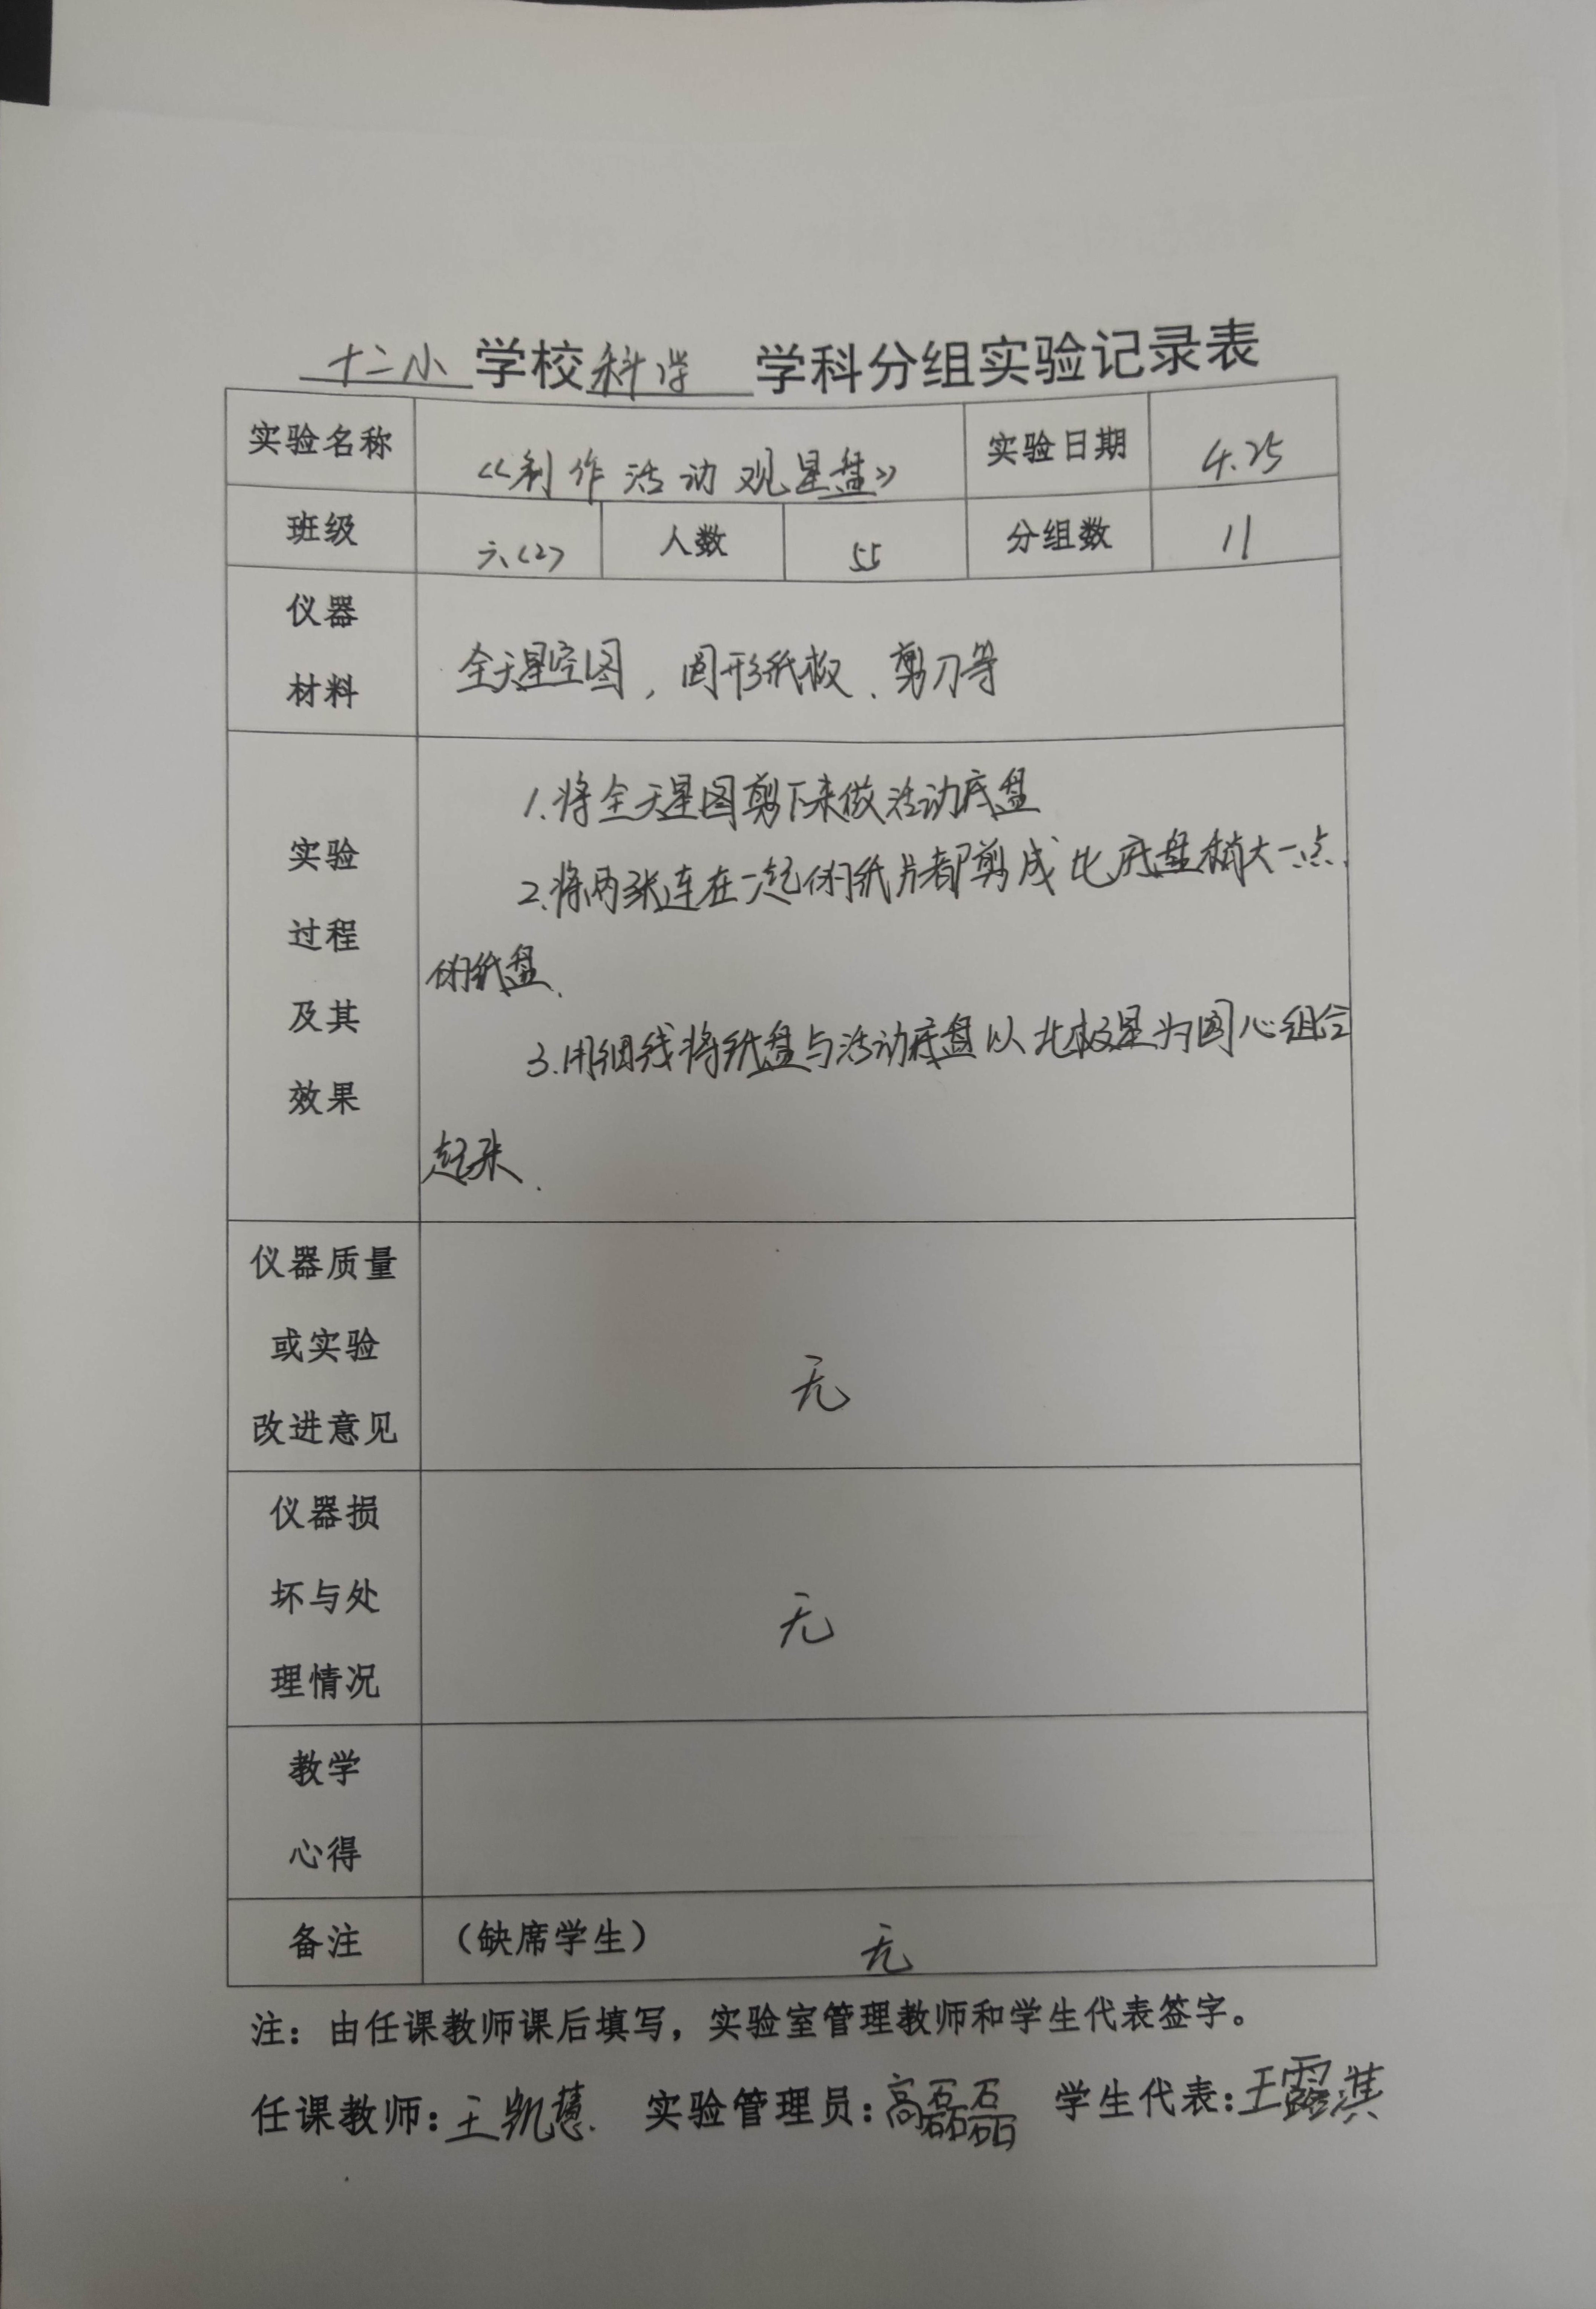 十二小 学校 科学 学科分组实验记录表
实验名称 《制作活动观星盘》 实验日期 4.25
班级 六(2) 人数 55 分组数 11
仪器
材料
全天星空图，圆形纸板、剪刀等
实验
过程
及其
效果
1.将全天星图剪下来做活动底盘
2.将两张连在一起的纸片都剪成比底盘稍大一点
的纸盘.
3.用细线将纸盘与活动底盘以北极星为圆心组合
起来.
仪器质量
或实验
改进意见
无
仪器损
坏与处
理情况
无
教学
心得
备注 （缺席学生） 无
注：由任课教师课后填写，实验室管理教师和学生代表签字。
任课教师：王凯慧. 实验管理员：高磊磊 学生代表：王露淇